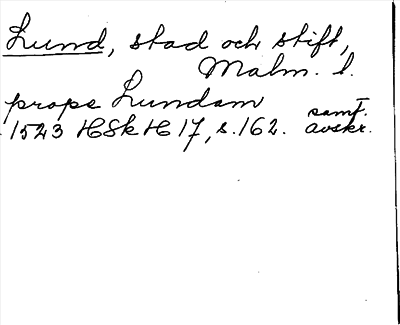 Lund, stad och stift,
Malm. l.
prope Lundam
1523 HSkH 17, s. 162. samt. avskr.